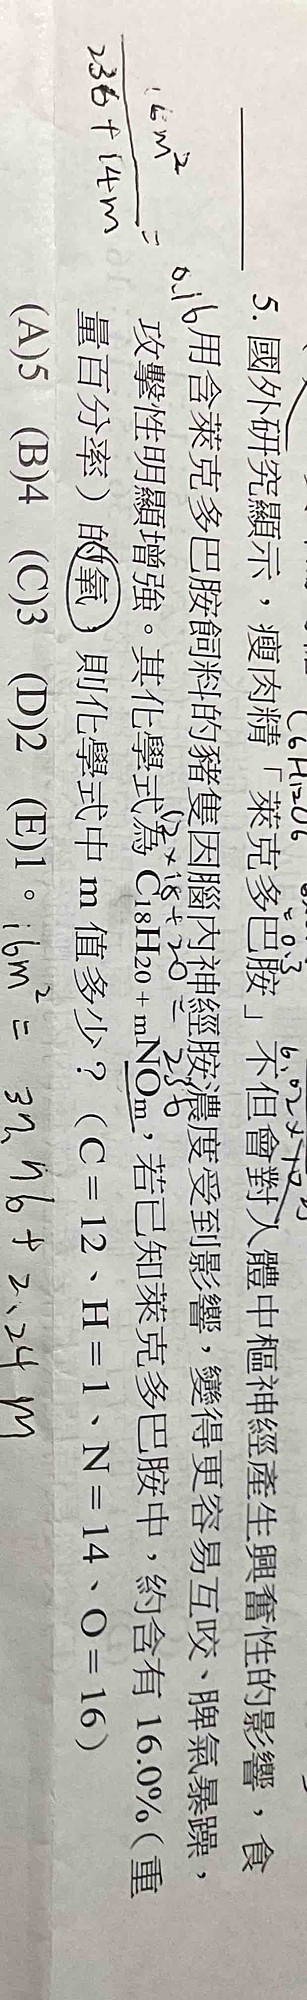 5. 國外研究顯示，瘦肉精「萊克多巴胺」不但會對人體中樞神經產生興奮性的影響，食
用含萊克多巴胺飼料的豬隻因腦內神經胺濃度受到影響，變得更容易互咬、脾氣暴躁，
攻擊性明顯增強。其化學式為 C18H20＋mNOm，若已知萊克多巴胺中，約含有 16.0%（重
量百分率）的氧，則化學式中 m 值多少？（C＝12、H＝1、N＝14、O＝16）
(A)5 (B)4 (C)3 (D)2 (E)1。
16m²
236+14m
= 0.16
12×18+20 = 236
16m² = 37.76+2.24m
C6H12O6
= 0.3